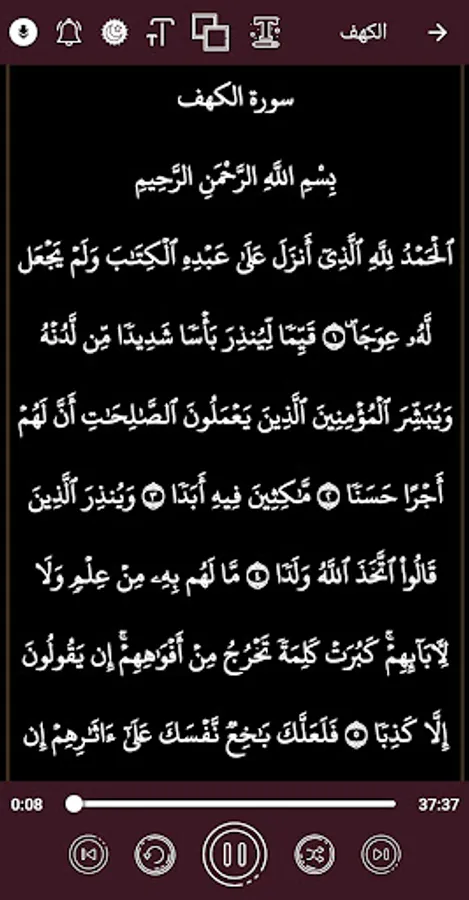 الكهف
سورة الكهف
بِسْمِ اللَّهِ الرَّحْمَٰنِ الرَّحِيمِ
ٱلْحَمْدُ لِلَّهِ ٱلَّذِىٓ أَنزَلَ عَلَىٰ عَبْدِهِ ٱلْكِتَٰبَ وَلَمْ يَجْعَل
لَّهُۥ عِوَجَاۜ ١ قَيِّمًا لِّيُنذِرَ بَأْسًا شَدِيدًا مِّن لَّدُنْهُ
وَيُبَشِّرَ ٱلْمُؤْمِنِينَ ٱلَّذِينَ يَعْمَلُونَ ٱلصَّٰلِحَٰتِ أَنَّ لَهُمْ
أَجْرًا حَسَنًا ٢ مَّٰكِثِينَ فِيهِ أَبَدًا ٣ وَيُنذِرَ ٱلَّذِينَ
قَالُوا۟ ٱتَّخَذَ ٱللَّهُ وَلَدًا ٤ مَّا لَهُم بِهِۦ مِنْ عِلْمٍ وَلَا
لِءَابَآئِهِمْ ۚ كَبُرَتْ كَلِمَةً تَخْرُجُ مِنْ أَفْوَٰهِهِمْ ۚ إِن يَقُولُونَ
إِلَّا كَذِبًا ٥ فَلَعَلَّكَ بَٰخِعٌ نَّفْسَكَ عَلَىٰٓ ءَاثَٰرِهِمْ إِن
0:08
37:37